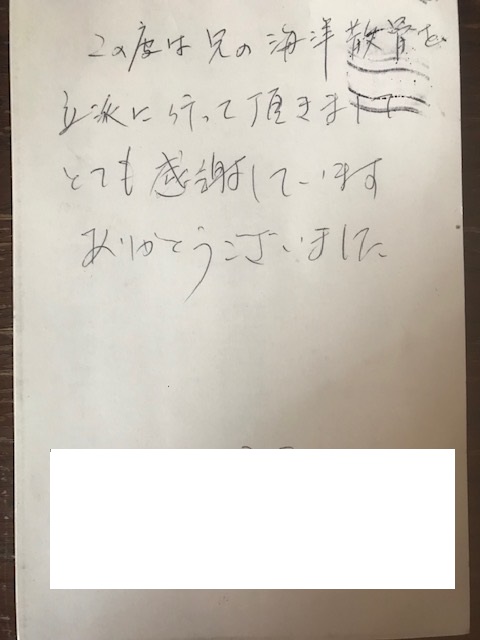 この度は兄の海洋散骨を
立派に行って頂きまして
とても感謝しています
ありがとうございました